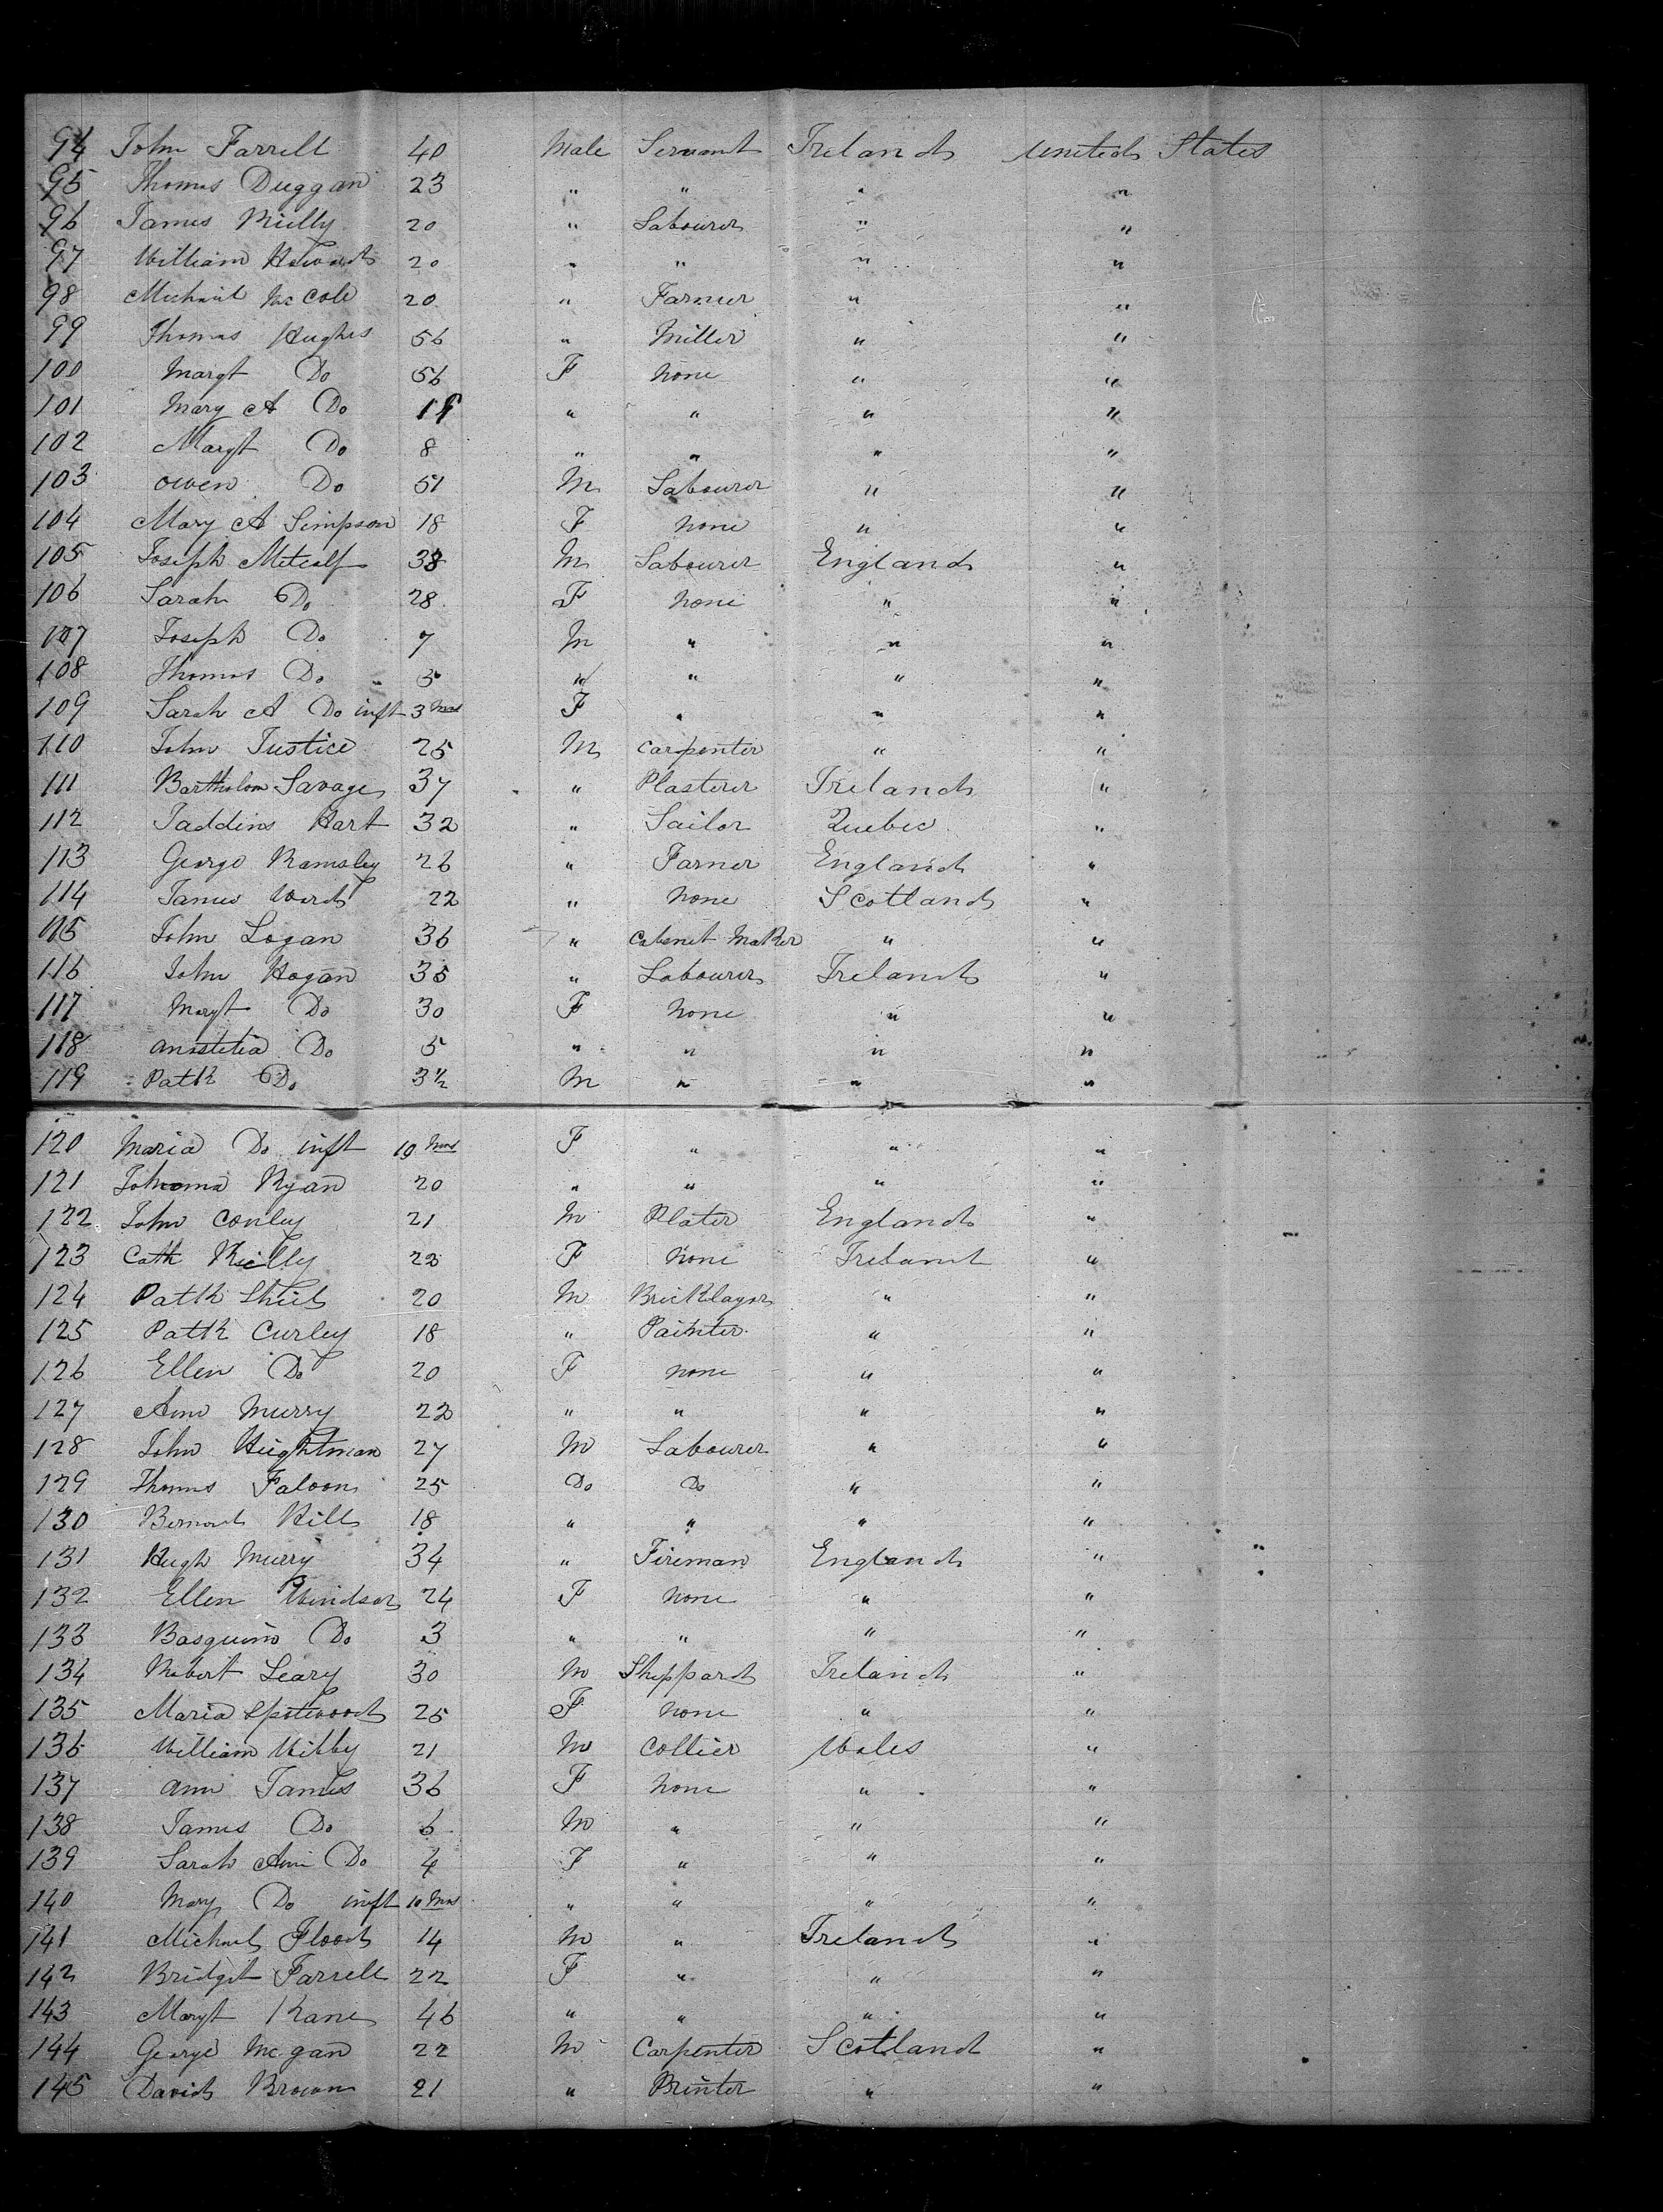 94 John Farrell 40 Male Servant Ireland United States
95 Thomas Duggan 23 " " " "
96 James Rielly 20 " Labourer " "
97 William Howard 20 " " " "
98 Michael McCole 20 " Farmer " "
99 Thomas Hughes 56 " Miller " "
100 Margt Do 56 F None " "
101 Mary A Do " " " "
102 Margt Do 8 " " " "
103 Owen Do 51 M Labourer " "
104 Mary A Simpson 18 F None " "
105 Joseph Metcalf 38 M Labourer England "
106 Sarah Do 28 F None " "
107 Joseph Do 7 M " " "
108 Thomas Do 5 " " " "
109 Sarah A Do inft 3 Mos F " " "
110 John Justice 25 M Carpenter " "
111 Bartholom Savage 37 " Plasterer Ireland "
112 Taddius Hart 32 " Sailor Quebec "
113 George Ramsley 26 " Farmer England "
114 James Ward 22 " None Scotland "
115 John Logan 36 " Cabenet Maker " "
116 John Hogan 35 " Labourer Ireland "
117 Margt Do 30 F None " "
118 Anistetia Do 5 " " " "
119 Patk Do 3½ M " " "
120 Maria Do inft 10 Mos F " " "
121 Johanna Ryan 20 " " " "
122 John Conley 21 M Plater England "
123 Cath Rielly 22 F None Ireland "
124 Patk Shiel 20 M Bricklayer " "
125 Patk Curley 18 " Painter " "
126 Ellen Do 20 F None " "
127 Ann Murry 22 " " " "
128 John Hightman 27 M Labourer " "
129 Thomas Faloon 25 Do Do " "
130 Bernard Hill 18 " " " "
131 Hugh Murry 34 " Fireman England "
132 Ellen Windsor 24 F None " "
133 Basquino Do 3 " " " "
134 Robert Leary 30 M Sheppard Ireland "
135 Maria Spotwood 25 F None " "
136 William Wibby 21 M Collier Wales "
137 Ann James 36 F None " "
138 James Do 6 M " " "
139 Sarah Ann Do 4 F " " "
140 Mary Do inft 10 Mos " " " "
141 Michael Flood 14 M " Ireland "
142 Bridget Farrell 22 F " " "
143 Margt Kane 46 " " " "
144 George McGan 22 M Carpenter Scotland "
145 David Brown 21 " Printer " "